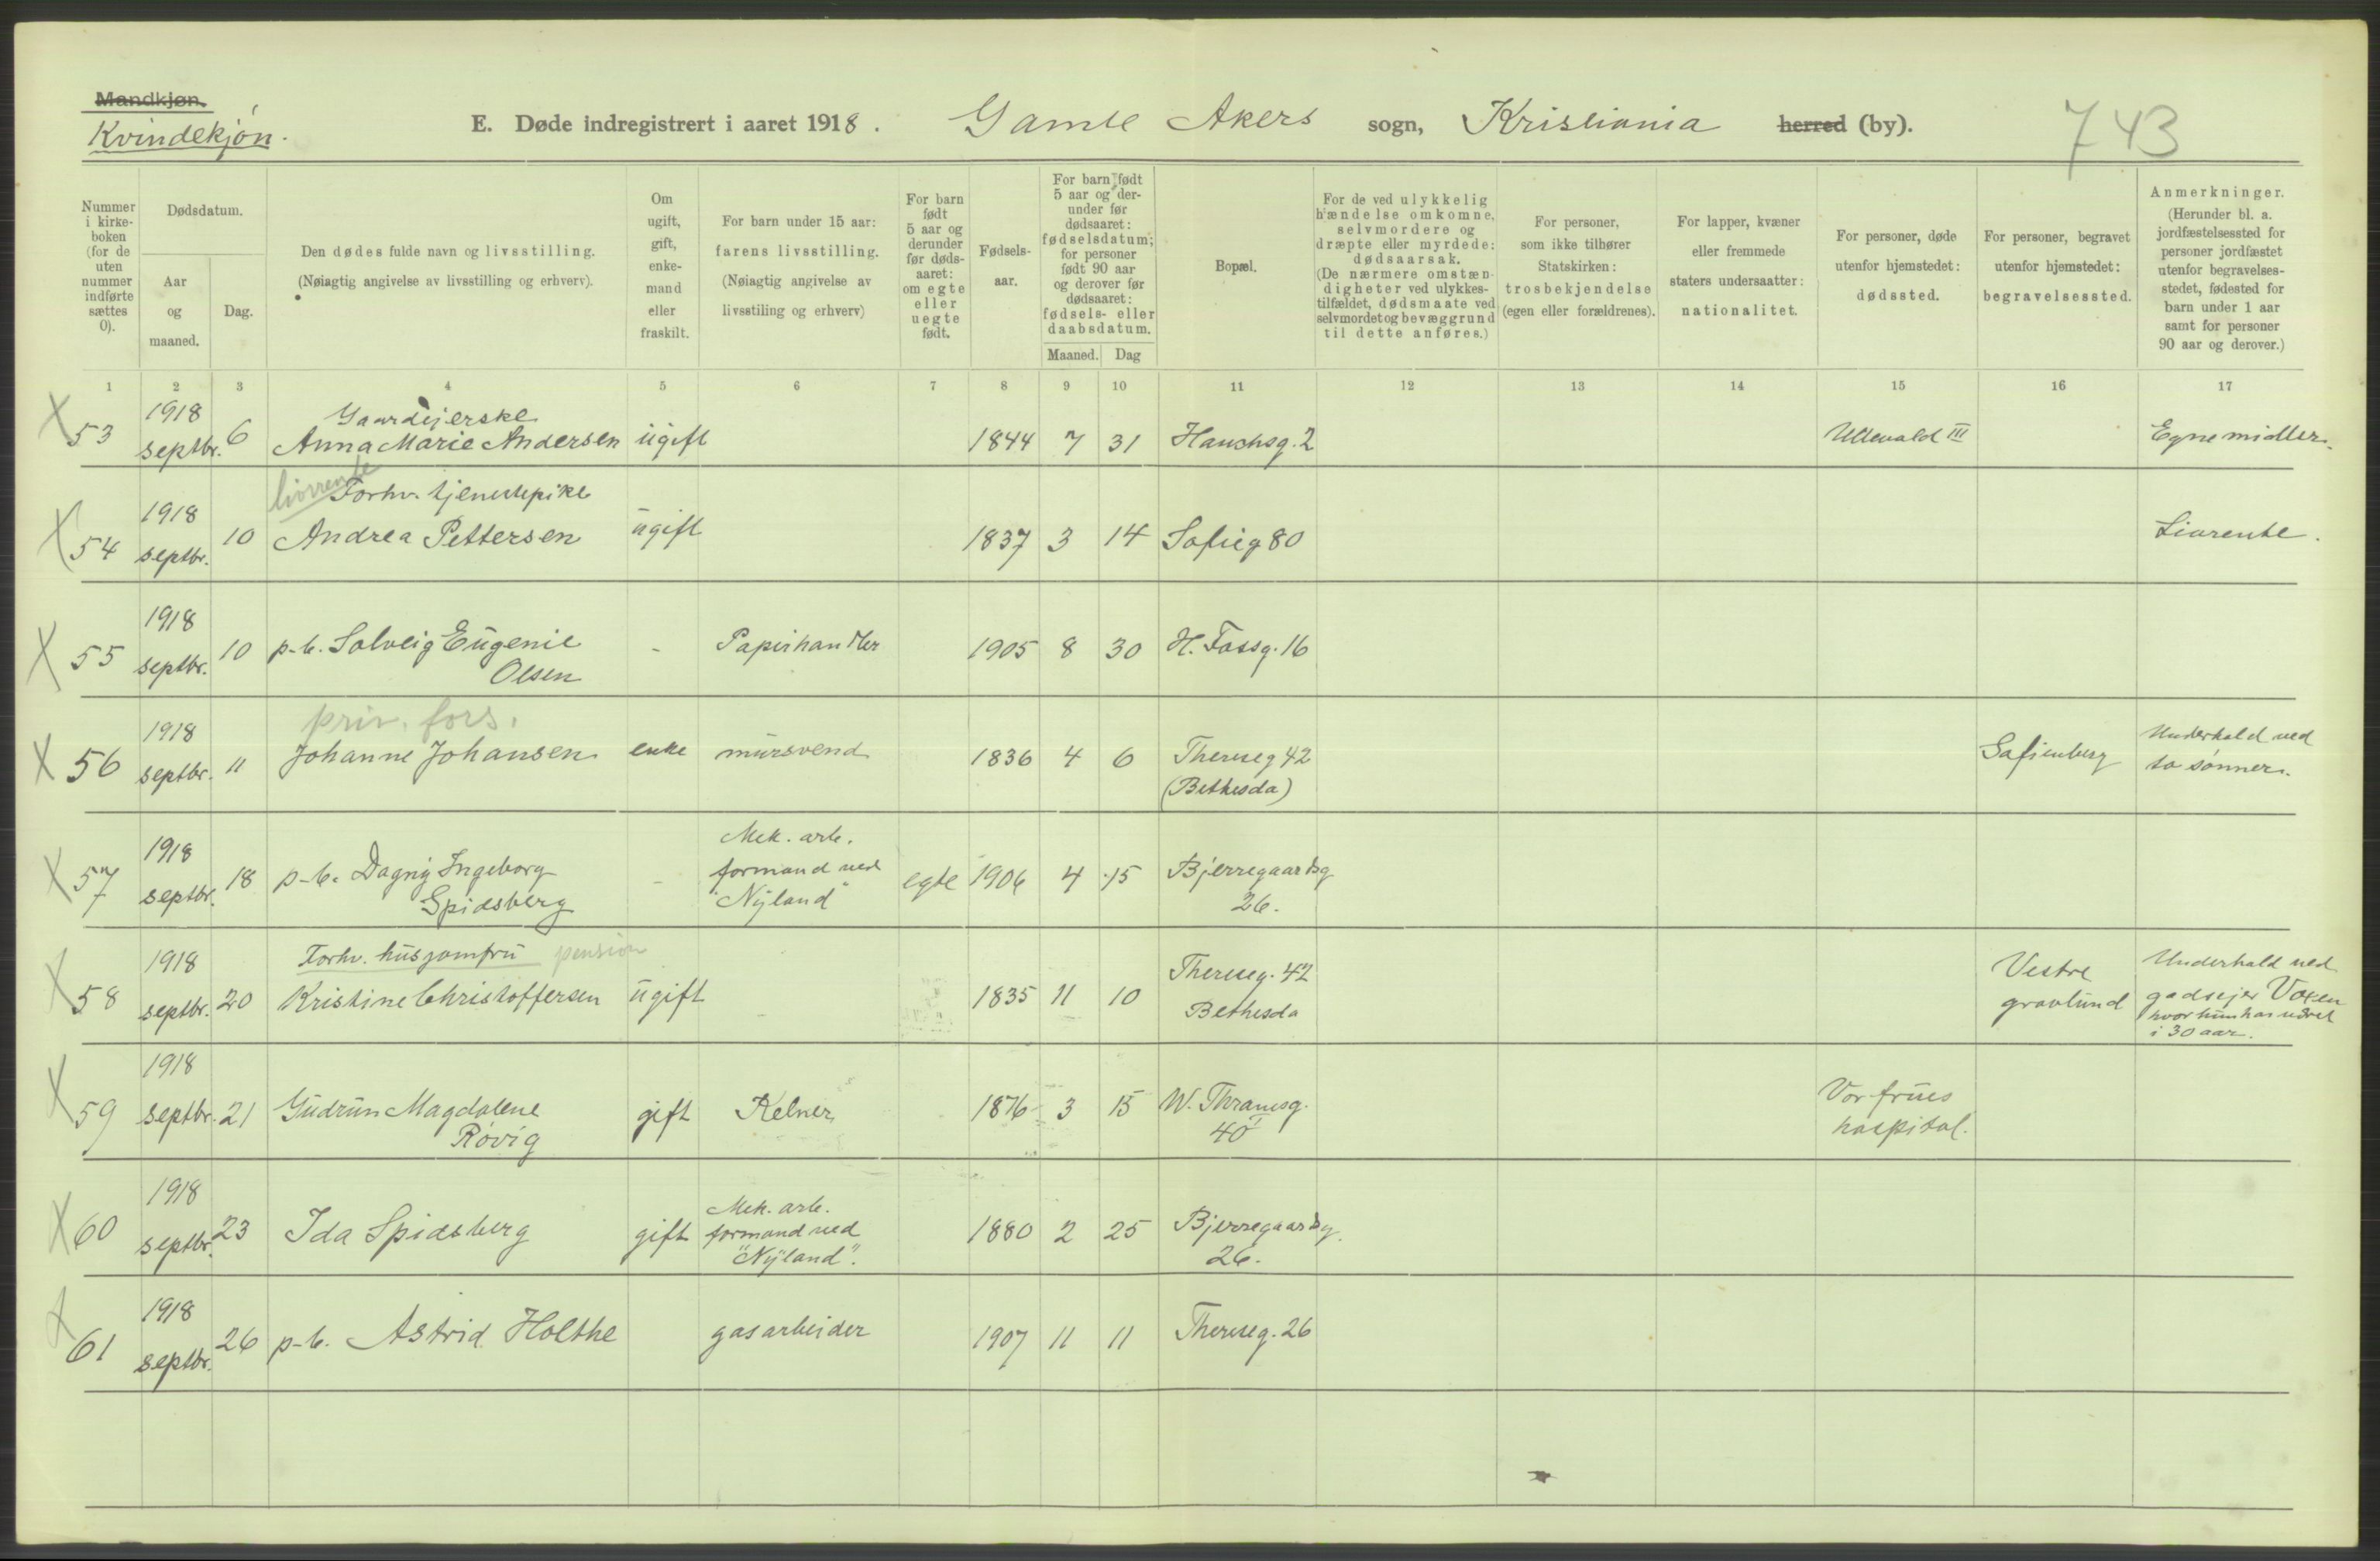 Mandkjøn.
Kvindekjøn.
E. Døde indregistrert i aaret 1918. Gamle Akers sogn, Kristiania herred (by).
743
Nummer i kirkeboken (for de uten nummer indførte sættes 0).
Dødsdatum.
Aar og maaned.
Dag.
Den dødes fulde navn og livsstilling.
(Nøiagtig angivelse av livsstilling og erhverv).
Om ugift, gift, enkemand eller fraskilt.
For barn under 15 aar: farens livsstilling.
(Nøiagtig angivelse av livsstiling og erhverv)
For barn født 5 aar og derunder før dødsaaret: om egte eller uegte født.
Fødselsaar.
For barn født 5 aar og derunder før dødsaaret: fødselsdatum; for personer født 90 aar og derover før dødsaaret: fødsels- eller daabsdatum.
Maaned. Dag
Bopæl.
For de ved ulykkelig hændelse omkomne, selvmordere og dræpte eller myrdede: dødsaarsak.
(De nærmere omstændigheter ved ulykkestilfældet, dødsmaate ved selvmordet og bevæggrund til dette anføres.)
For personer, som ikke tilhører Statskirken: trosbekjendelse (egen eller forældrenes).
For lapper, kvæner eller fremmede staters undersaatter: nationalitet.
For personer, døde utenfor hjemstedet: dødssted.
For personer, begravet utenfor hjemstedet: begravelsessted.
Anmerkninger.
(Herunder bl. a. jordfæstelsessted for personer jordfæstet utenfor begravelsesstedet, fødested for barn under 1 aar samt for personer 90 aar og derover.)
1 2 3 4 5 6 7 8 9 10 11 12 13 14 15 16 17
X 53 1918 septbr. 6 Gaardejerske Anna Marie Andersen ugift 1844 7 31 Hauchsg. 2 Ullevald III Egne midler.
X 54 1918 septbr. 10 livrente Forhv. tjenestepike Andrea Pettersen ugift 1837 3 14 Sofieg 80 Livrente.
X 55 1918 septbr. 10 p-b. Solveig Eugenie Olsen - Papirhandler 1905 8 30 H. Fossg. 16
X 56 1918 septbr. 11 priv. fors. Johanne Johansen enke mursvend 1836 4 6 Thereseg 42 (Bethesda) Sofienberg Underhold ved to sønner.
X 57 1918 septbr. 18 p-b. Dagny Ingeborg Spidsberg - Mek. arb. formand ved "Nyland" egte 1906 4 15 Bjerregaardsg 26.
X 58 1918 septbr. 20 Forhv. husjomfru pension Kristine Christoffersen ugift 1835 11 10 Thereseg. 42 Bethesda Vestre gravlund Underhold ved godsejer Voxen hvor hun har været i 30 aar.
X 59 1918 septbr. 21 Gudrun Magdalene Røvig gift Kelner 1876 3 15 W. Thranesg. 40 Vor frues hospital.
X 60 1918 septbr. 23 Ida Spidsberg gift Mek. arb. formand ved "Nyland". 1880 2 25 Bjerregaardsg. 26.
X 61 1918 septbr. 26 p-b. Astrid Holthe gasarbeider 1907 11 11 Thereseg. 26